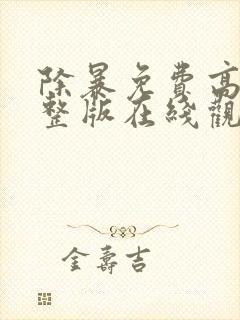 除暴免費高
整版在綫觀
金壽吉